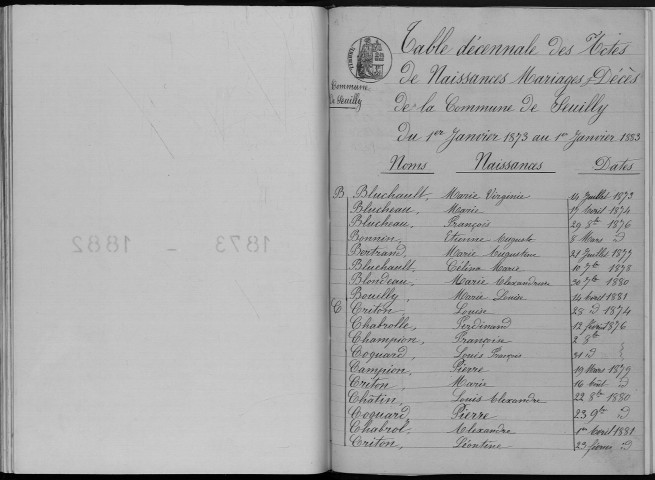 Table décennale des Actes
de Naissances Mariages & Décès
de la Commune de Seuilly
du 1er Janvier 1873 au 1er Janvier 1883
Commune
de Seuilly
Noms Naissances Dates
B Bluchault, Marie Virginie 14 Juillet 1873
Blucheau, Marie 17 Avril 1874
Blucheau, François 29 8bre 1876
Bonnin, Etienne Auguste 8 Mars d
Bertrand, Marie Augustine 21 Juillet 1877
Bluchault, Célina Marie 10 7bre 1878
Blondeau, Marie Alexandrine 30 7bre 1880
Bouilly, Marie Louise 14 Avril 1881
C Criton, Louis 28 d 1874
Chabrolle, Ferdinand 12 février 1876
Champion, François 2 8bre
Coquard, Louis François 31 d
Campion, Pierre 19 Mars 1879
Criton, Marie 16 Août d
Châtin, Louis Alexandre 22 8bre 1880
Coquard, Pierre 23 9bre d
Chabrol, Alexandre 1er Avril 1881
Criton, Léontine 23 février d
1873 - 1882